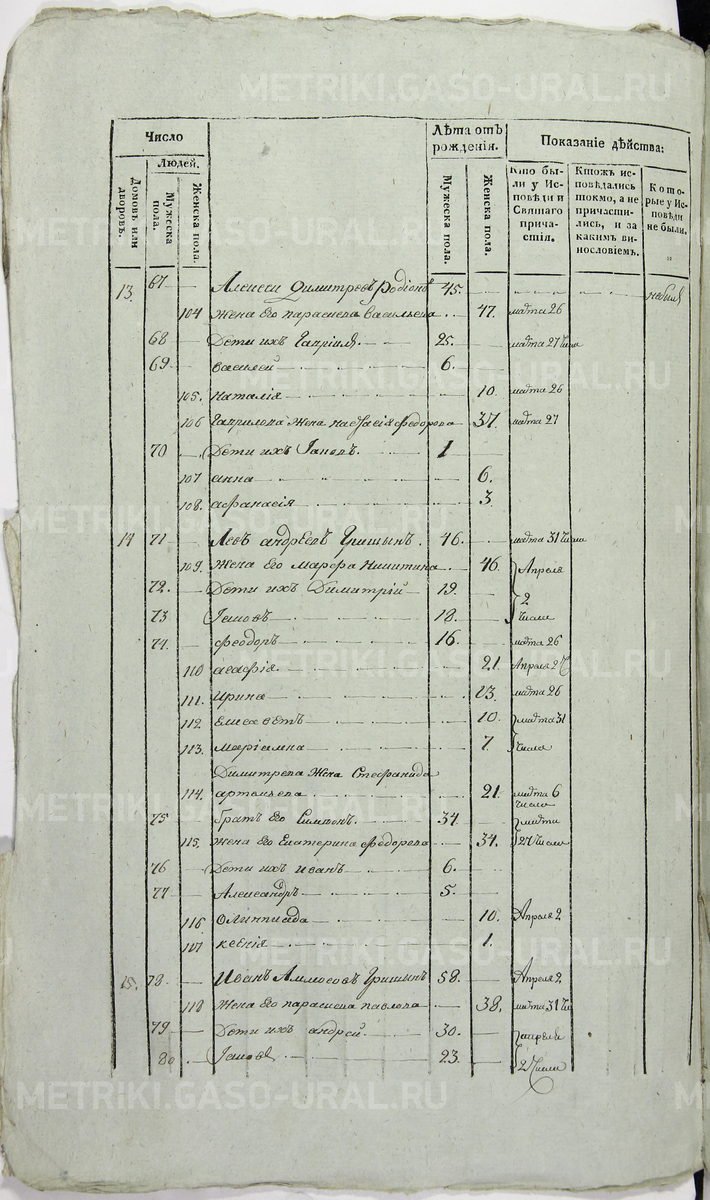 Число
Людей.
Домовъ или дворовъ.
Мужеска пола.
Женска пола.
Лѣта отъ рожденія.
Мужеска пола.
Женска пола.
Показаніе дѣйства:
Кто бы-
ли у Ис-
повѣди и
Святаго
прича-
стія.
Ктожъ ис-
повѣдались
токмо, а не
причасти-
лись, и за
какимъ ви-
нословіемъ.
Кото-
рые у Ис-
повѣди
не были.
13. 67 Алексеи Димитревъ Родіонъ 45. небылъ
104 жена Его параскева васильева 47. марта 26
68 Дети ихъ Гавріилъ 25. марта 27 числа
69 василей 6.
105. наталія 10. марта 26
106 Гаврилова жена настасія федорова 37. марта 27
70 Дети ихъ Іаковъ. 1
107 анна 6.
108. афанасія 3.
14 71 Левъ андрѣевъ Гришынъ. 46. марта 31 числа
109. жена Его Марфа Никитина 46. Апреля
72. Дети ихъ Димитрій 19. 2
73 Іаковъ 18. числа
74. феодоръ 16. марта 26
110 агафія 21. Апреля 2 Ч
111. Ирина 13. марта 26
112 Елисаветъ 10. марта 31
113. маріамна 7 числа
Димитрева жена Стефанида
114. артемьева 21. марта 6
числа
75 братъ Его Симеонъ. 34. марта
115. жена Его Екатерина федорова 34. 27 числа
76 Дети ихъ иванъ 6.
77 Александръ 5.
116 Олимпиада 10. Апреля 2
117 ксенія 1.
15. 78. Иванъ Аммосовъ Гришынъ 58. Апреля 2
118 жена Его параскева павлова 38. марта 31 Чи
79 Дети ихъ андрей. 30. апреля
80 Іаковъ 23. 2 числа
METRIKI.GASO-URAL.RU